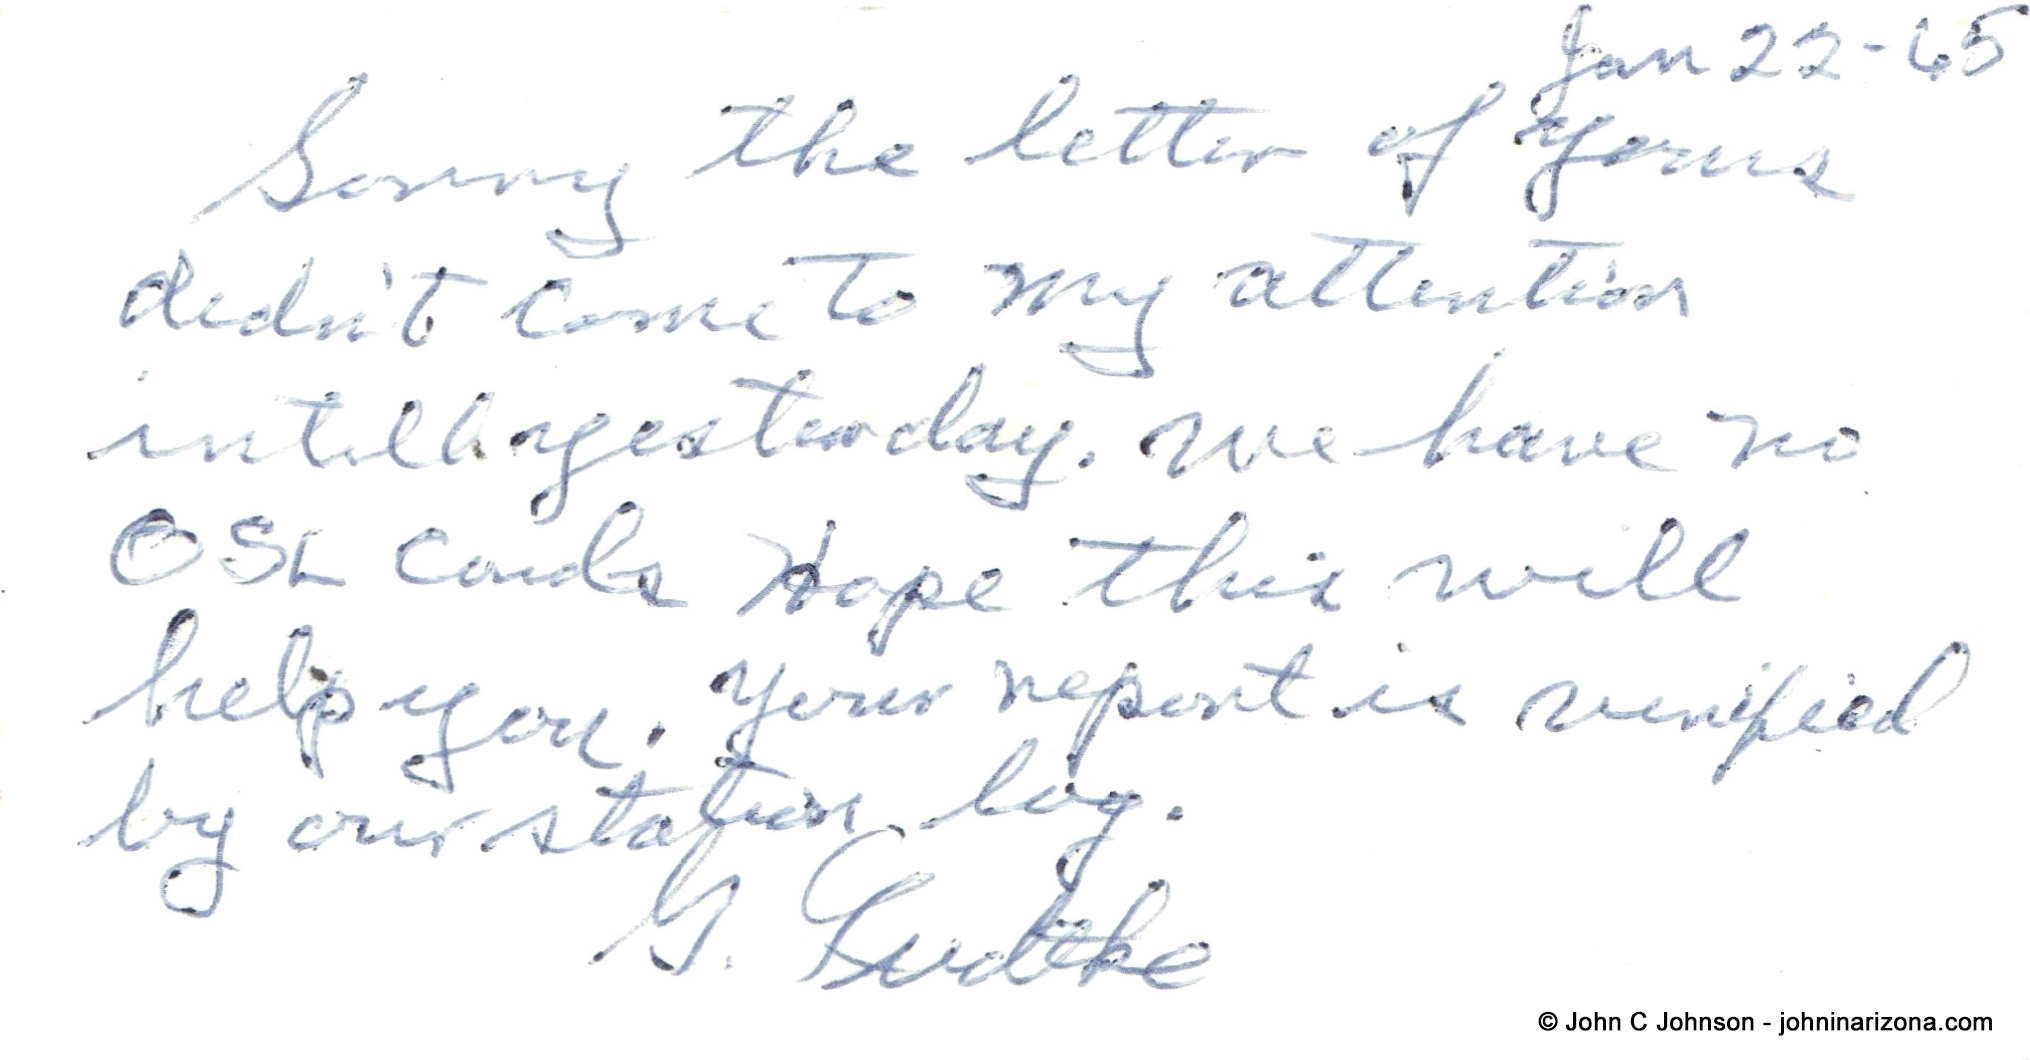 Jan 22-65
Sorry the letter of yours
didn't come to my attention
intill yesterday. We have no
QSL cards Hope this will
help you. Your report is verified
by our station log.
G. Ludtke
© John C Johnson - johninarizona.com